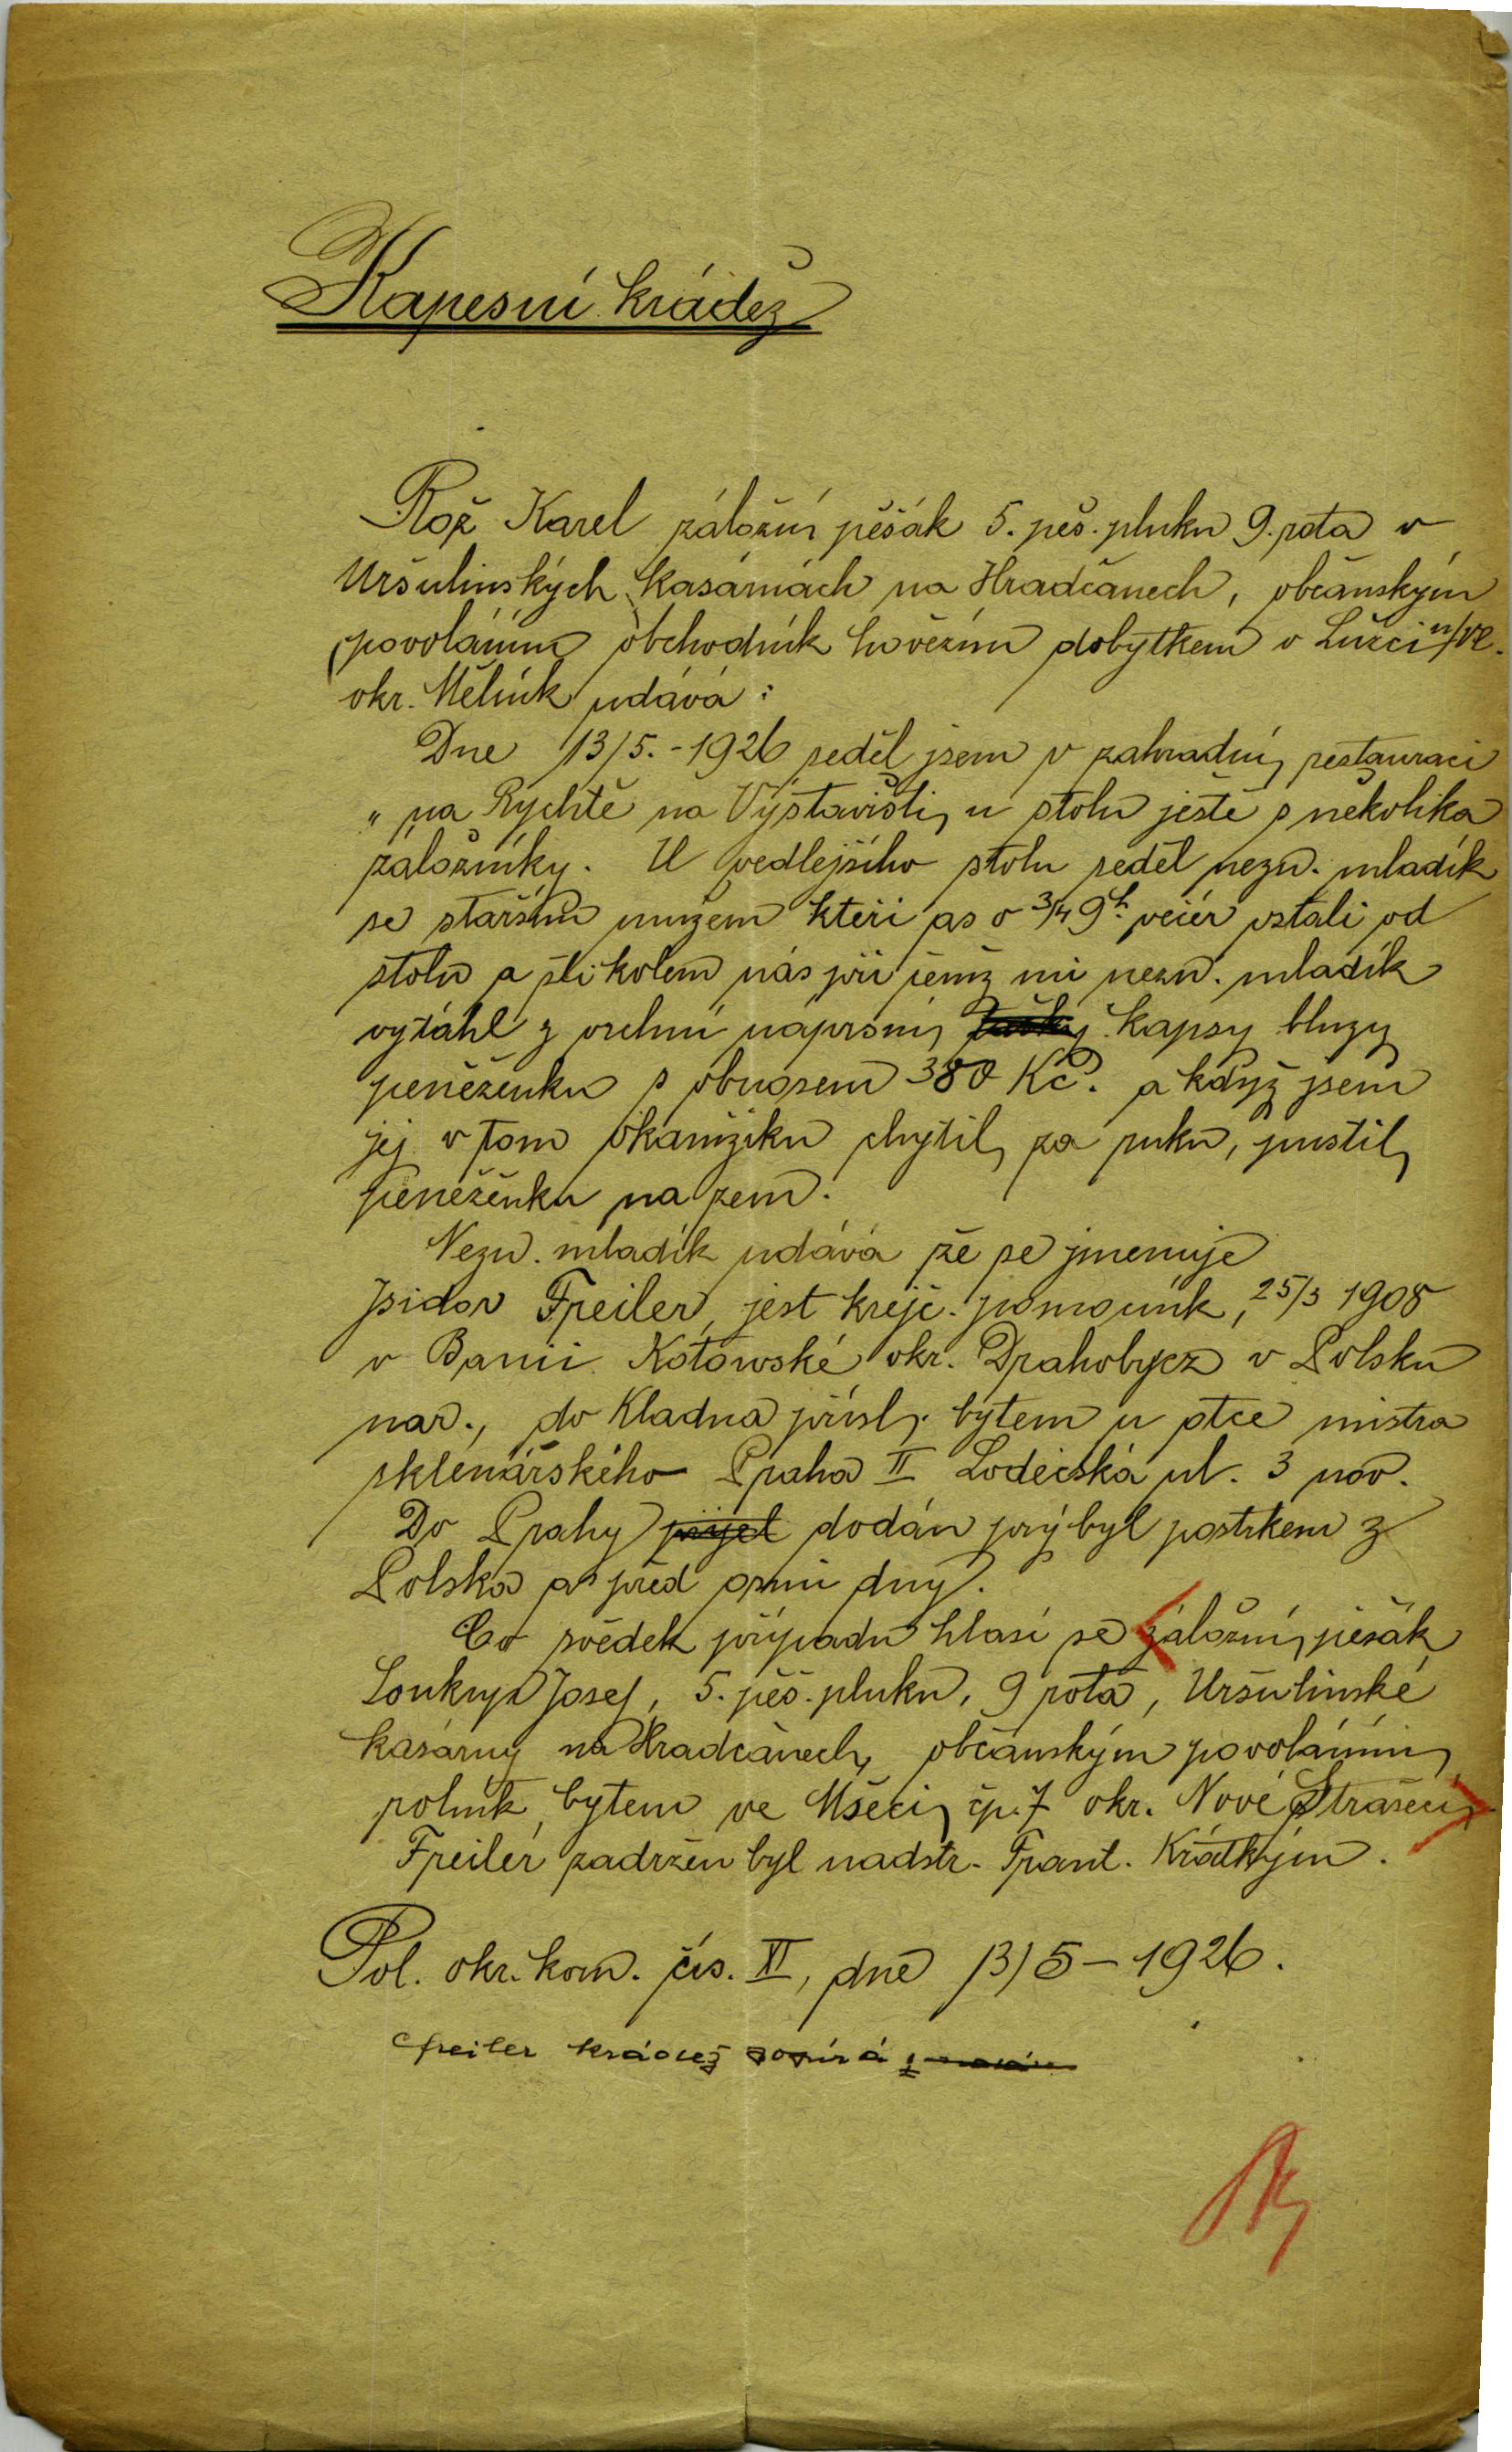 Kapesní krádež
Rož Karel záložní pěšák 5. pěš. pluku 9. rota v
Uršulinských kasárnách na Hradčanech, občanským
povoláním obchodník hovězím dobytkem v Lužci n/Vl.
okr. Mělník udává:
Dne 13/5.-1926 seděl jsem v zahradní restauraci
„na Rychtě na Výstavišti, u stolu ještě s několika
záložníky. U vedlejšího stolu seděl nezn. mladík
se starším mužem kteří as o 3/4 9h. večer vstali od
stolu a šli kolem nás při čemž mi nezn. mladík
vytáhl z vrchní náprsní tašky kapsy bluzy
peněženku s obnosem 380 Kč. a když jsem
jej v tom okamžiku chytil za ruku, pustil
peněženku na zem.
Nezn. mladík udává že se jmenuje
Isidor Freiler, jest krejč. pomocník, 25/3 1908
v Banii Kotowské okr. Drahobycz v Polsku
nar., do Kladna přísl. bytem u otce mistra
sklenářského Praha II Lodecká ul. 3 nov.
Do Prahy přijel dodán prý byl postrkem z
Polska as před osmi dny.
Co svědek případu hlásí se záložní pěšák
Loukryt Josef, 5. pěš. pluku, 9 rota, Uršulinské
kasárny na Hradčanech, občanským povoláním
rolník, bytem ve Mšeci, čp. 7 okr. Nové Strašecí,
Freiler zadržen byl nadstr. Frant. Krátkým.
Pol. okr. kom. čís. VI, dne 13/5-1926.
Freiler krádež popírá